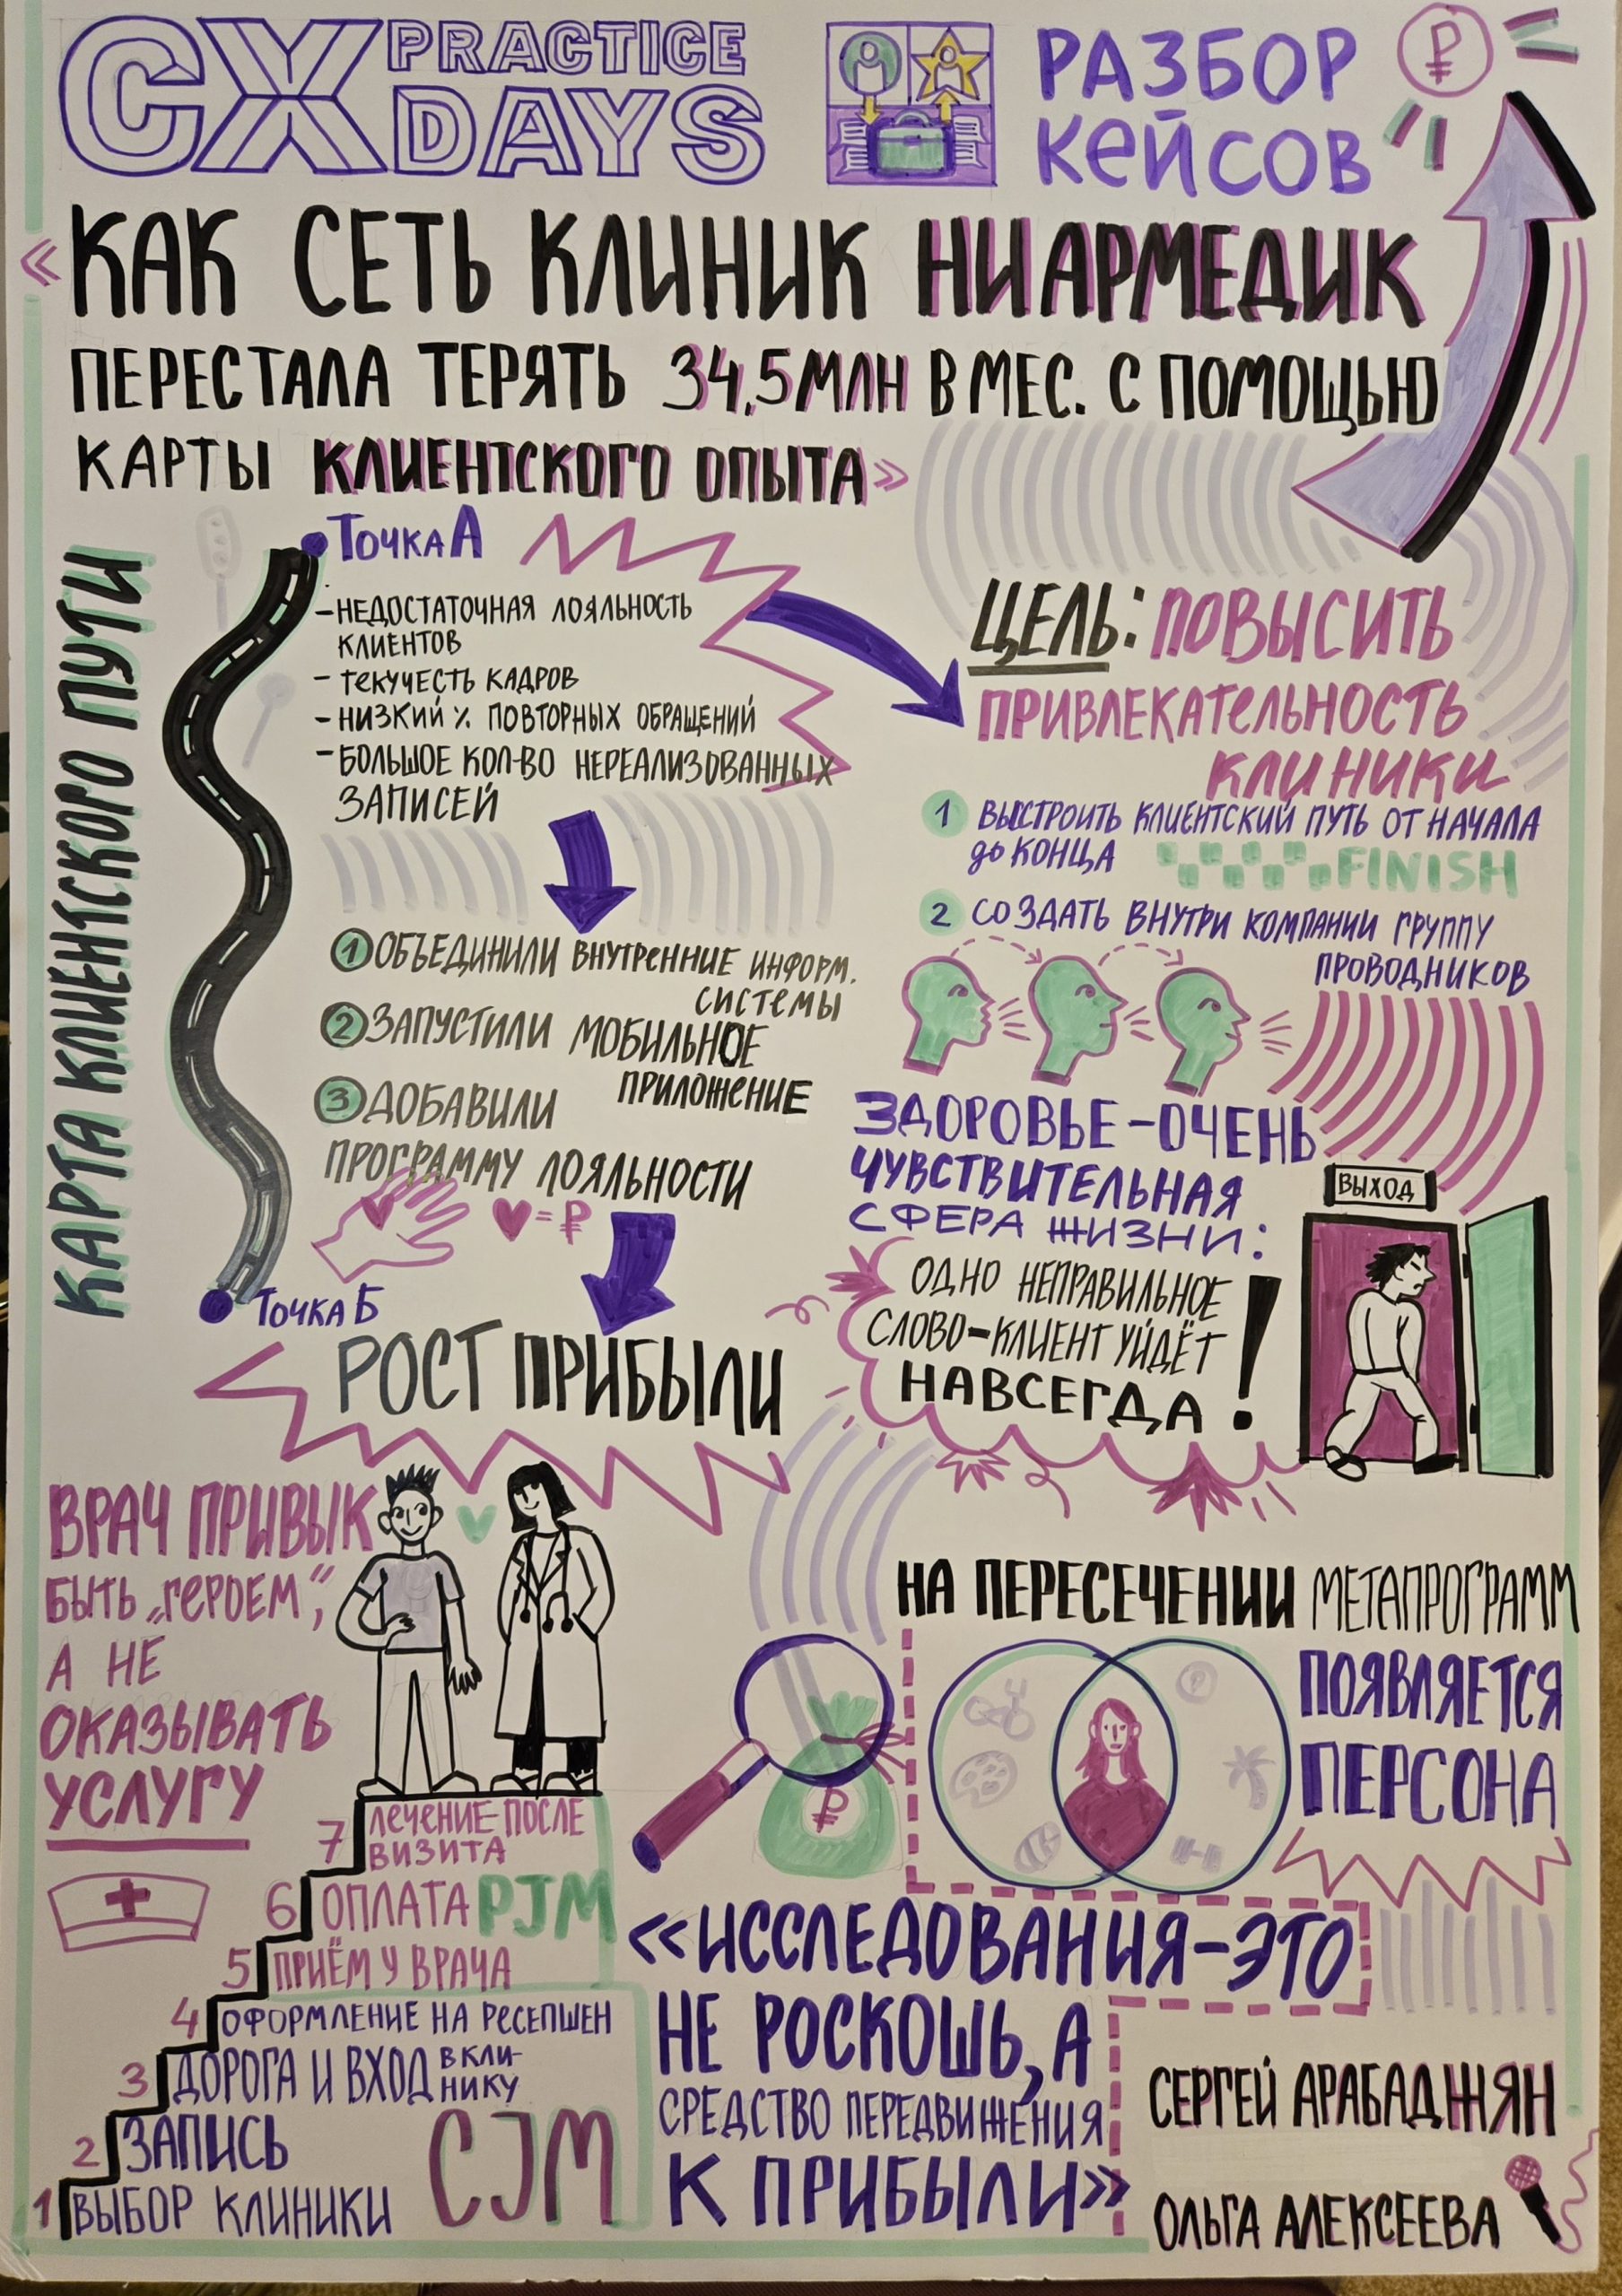 CX PRACTICE DAYS
РАЗБОР
КЕЙСОВ
₽
«КАК СЕТЬ КЛИНИК НИАРМЕДИК
ПЕРЕСТАЛА ТЕРЯТЬ 34,5 МЛН В МЕС. С ПОМОЩЬЮ
КАРТЫ КЛИЕНТСКОГО ОПЫТА»
КАРТА КЛИЕНТСКОГО ПУТИ
ТОЧКА А
- НЕДОСТАТОЧНАЯ ЛОЯЛЬНОСТЬ
КЛИЕНТОВ
- ТЕКУЧЕСТЬ КАДРОВ
- НИЗКИЙ % ПОВТОРНЫХ ОБРАЩЕНИЙ
- БОЛЬШОЕ КОЛ-ВО НЕРЕАЛИЗОВАННЫХ
ЗАПИСЕЙ
1 ОБЪЕДИНИЛИ ВНУТРЕННИЕ ИНФОРМ.
СИСТЕМЫ
2 ЗАПУСТИЛИ МОБИЛЬНОЕ
ПРИЛОЖЕНИЕ
3 ДОБАВИЛИ
ПРОГРАММУ ЛОЯЛЬНОСТИ
♥ = ₽
ТОЧКА Б
РОСТ ПРИБЫЛИ
ЦЕЛЬ: ПОВЫСИТЬ
ПРИВЛЕКАТЕЛЬНОСТЬ
КЛИНИКИ
1 ВЫСТРОИТЬ КЛИЕНТСКИЙ ПУТЬ ОТ НАЧАЛА
до КОНЦА
FINISH
2 СОЗДАТЬ ВНУТРИ КОМПАНИИ ГРУППУ
ПРОВОДНИКОВ
ЗДОРОВЬЕ - ОЧЕНЬ
ЧУВСТВИТЕЛЬНАЯ
СФЕРА ЖИЗНИ:
ОДНО НЕПРАВИЛЬНОЕ
СЛОВО - КЛИЕНТ УЙДЁТ
НАВСЕГДА!
ВЫХОД
ВРАЧ ПРИВЫК
БЫТЬ „ГЕРОЕМ“,
А НЕ
ОКАЗЫВАТЬ
УСЛУГУ
7 ЛЕЧЕНИЕ ПОСЛЕ
ВИЗИТА
6 ОПЛАТА
PJM
5 ПРИЁМ У ВРАЧА
4 ОФОРМЛЕНИЕ НА РЕСЕПШЕН
3 ДОРОГА И ВХОД В КЛИ-
НИКУ
2 ЗАПИСЬ
1 ВЫБОР КЛИНИКИ
CJM
НА ПЕРЕСЕЧЕНИИ МЕТАПРОГРАММ
ПОЯВЛЯЕТСЯ
ПЕРСОНА
₽
₽
«ИССЛЕДОВАНИЯ - ЭТО
НЕ РОСКОШЬ, А
СРЕДСТВО ПЕРЕДВИЖЕНИЯ
К ПРИБЫЛИ»
СЕРГЕЙ АРАБАДЖЯН
ОЛЬГА АЛЕКСЕЕВА